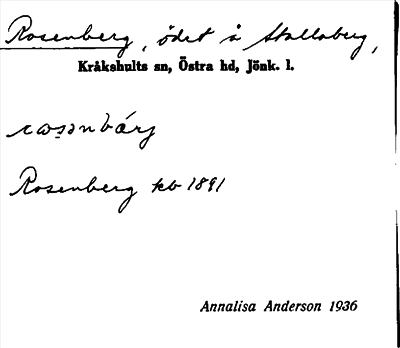 Rosenberg, ödet å Stallaberg,
Kråkshults sn, Östra hd, Jönk. l.
Rosenberg kb 1891
Annalisa Anderson 1936